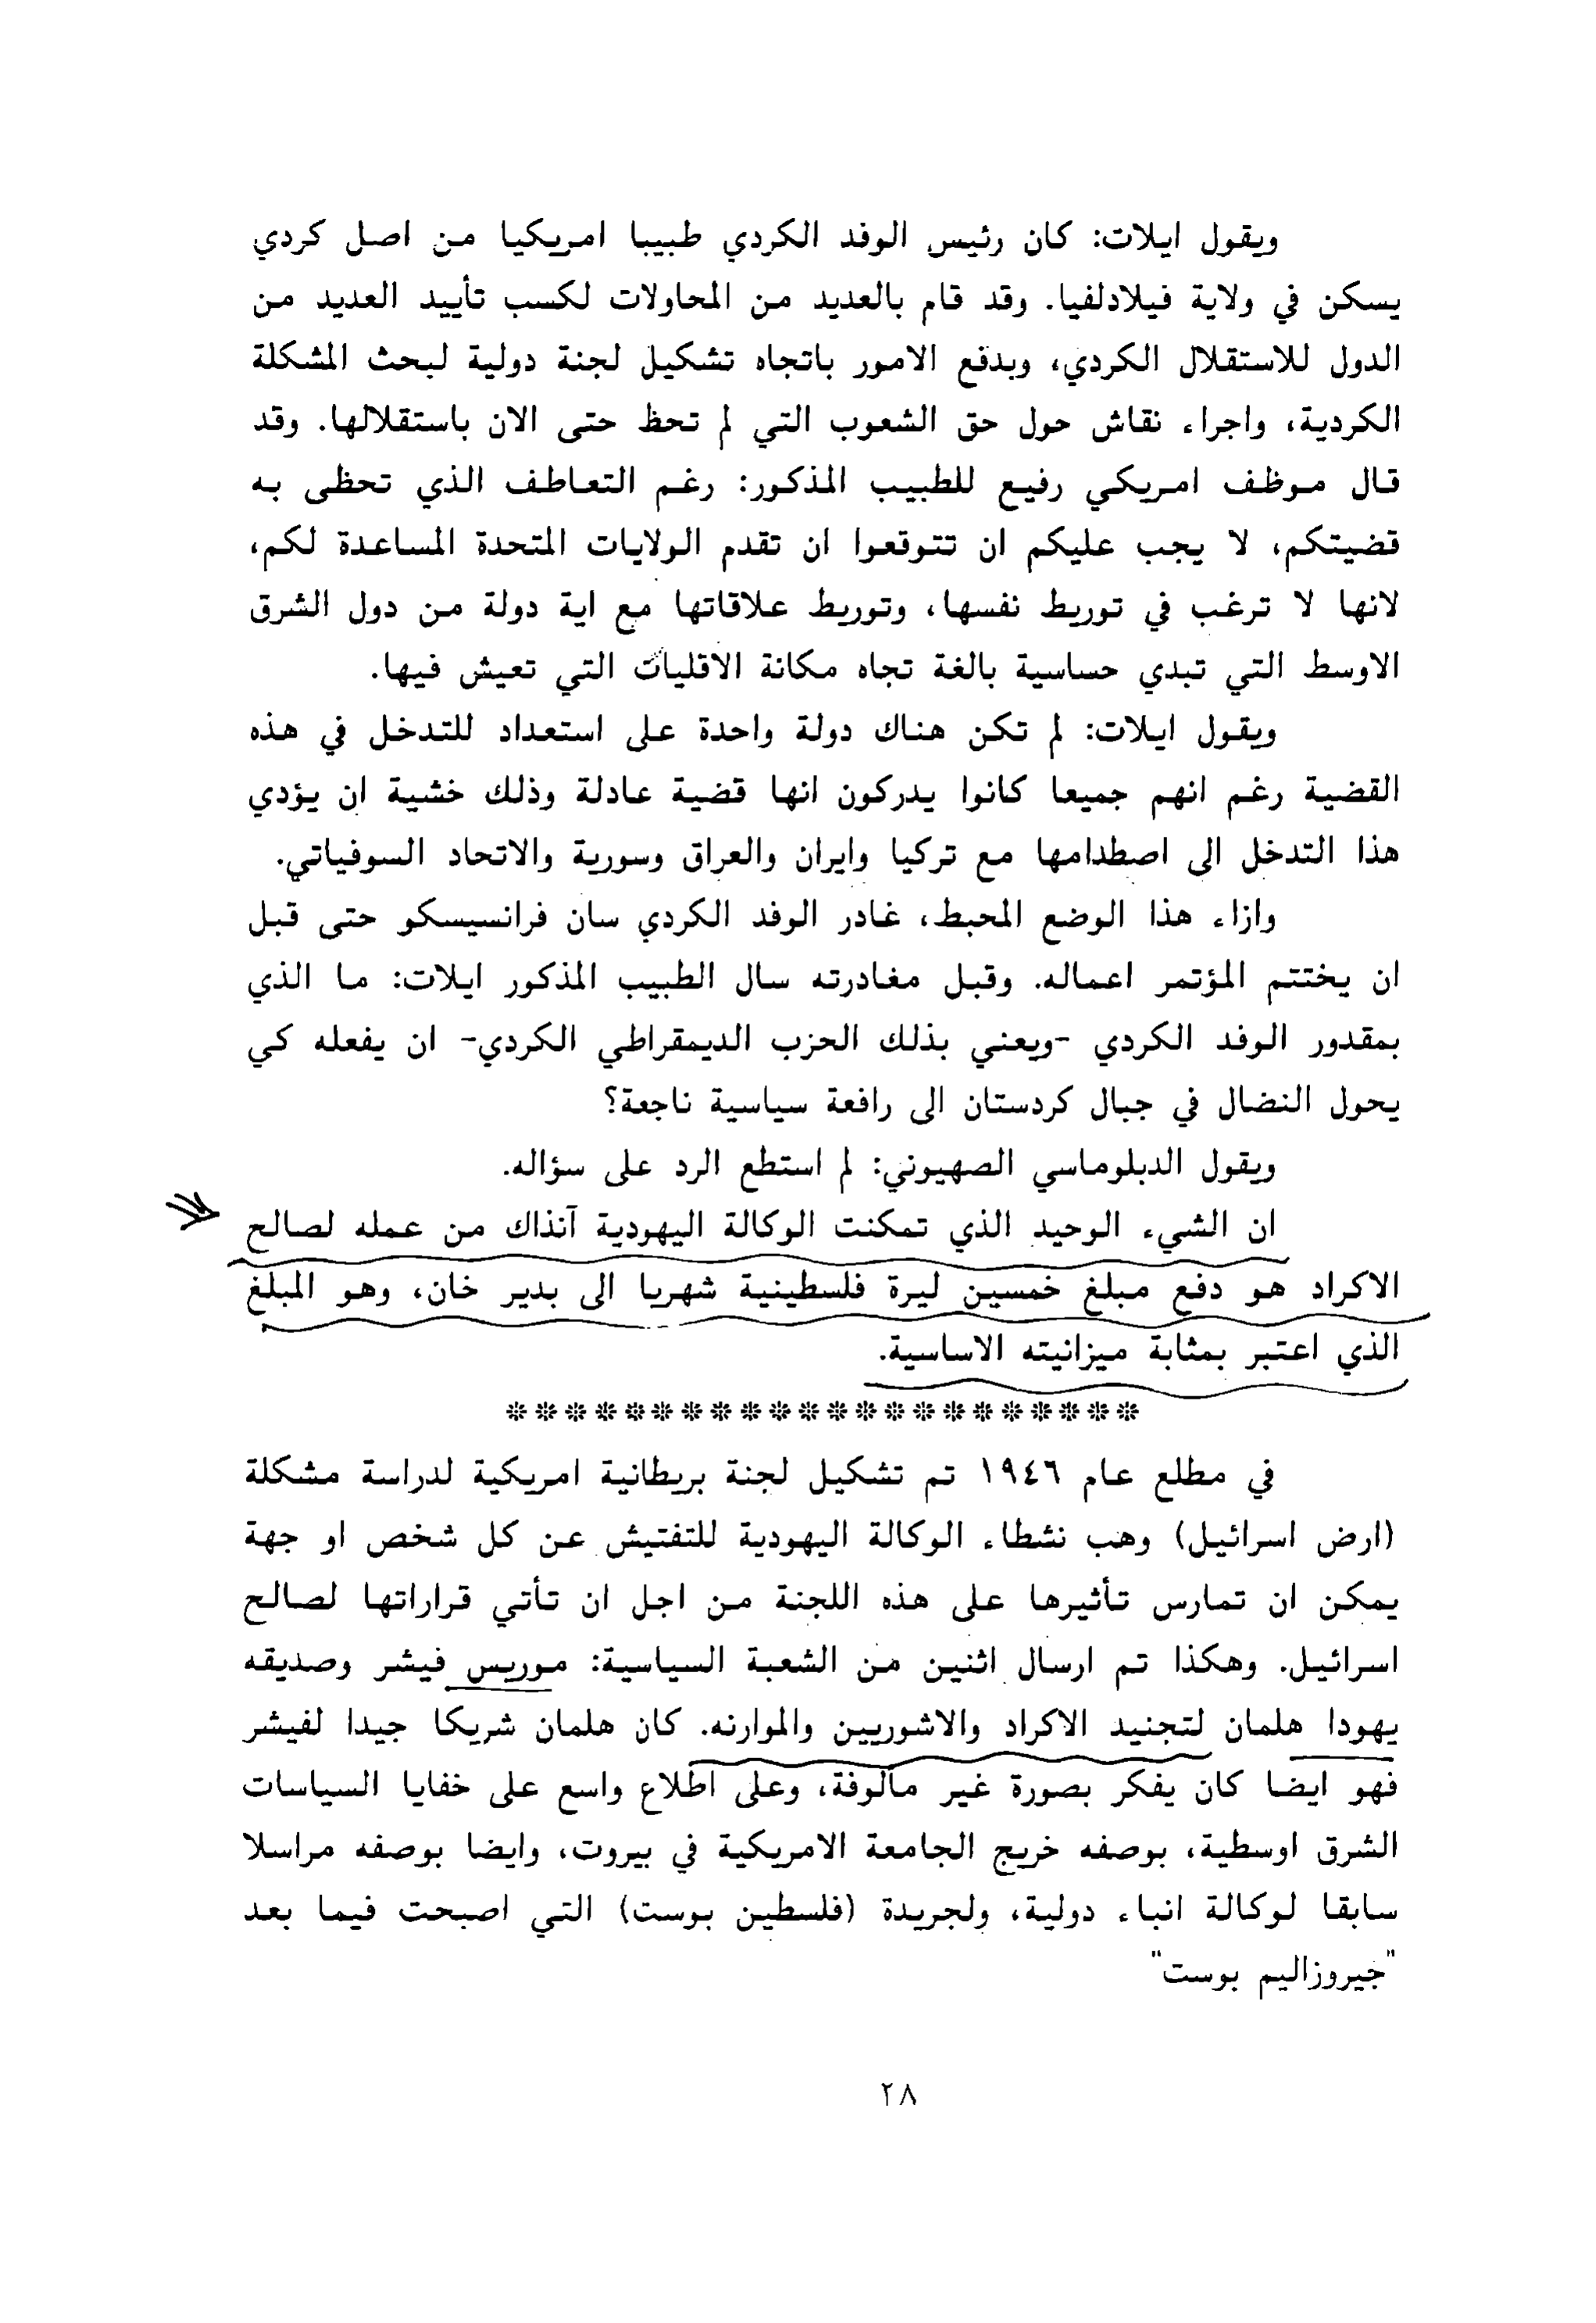 ويقول ايلات: كان رئيس الوفد الكردي طبيبا امريكيا من اصل كردي
يسكن في ولاية فيلادلفيا. وقد قام بالعديد من المحاولات لكسب تأييد العديد من
الدول للاستقلال الكردي، وبدفع الامور باتجاه تشكيل لجنة دولية لبحث المشكلة
الكردية، واجراء نقاش حول حق الشعوب التي لم تحظ حتى الان باستقلالها. وقد
قال موظف امريكي رفيع للطبيب المذكور: رغم التعاطف الذي تحظى به
قضيتكم، لا يجب عليكم ان تتوقعوا ان تقدم الولايات المتحدة المساعدة لكم،
لانها لا ترغب في توريط نفسها، وتوريط علاقاتها مع اية دولة من دول الشرق
الاوسط التي تبدي حساسية بالغة تجاه مكانة الاقليات التي تعيش فيها.
ويقول ايلات: لم تكن هناك دولة واحدة على استعداد للتدخل في هذه
القضية رغم انهم جميعا كانوا يدركون انها قضية عادلة وذلك خشية ان يؤدي
هذا التدخل الى اصطدامها مع تركيا وايران والعراق وسورية والاتحاد السوفياتي.
وازاء هذا الوضع المحبط، غادر الوفد الكردي سان فرانسيسكو حتى قبل
ان يختتم المؤتمر اعماله. وقبل مغادرته سال الطبيب المذكور ايلات: ما الذي
بمقدور الوفد الكردي -ويعني بذلك الحزب الديمقراطي الكردي- ان يفعله كي
يحول النضال في جبال كردستان الى رافعة سياسية ناجعة؟
ويقول الدبلوماسي الصهيوني: لم استطع الرد على سؤاله.
ان الشيء الوحيد الذي تمكنت الوكالة اليهودية آنذاك من عمله لصالح
الاكراد هو دفع مبلغ خمسين ليرة فلسطينية شهريا الى بدير خان، وهو المبلغ
الذي اعتبر بمثابة ميزانيته الاساسية.
**********************
في مطلع عام ١٩٤٦ تم تشكيل لجنة بريطانية امريكية لدراسة مشكلة
(ارض اسرائيل) وهب نشطاء الوكالة اليهودية للتفتيش عن كل شخص او جهة
يمكن ان تمارس تأثيرها على هذه اللجنة من اجل ان تأتي قراراتها لصالح
اسرائيل. وهكذا تم ارسال اثنين من الشعبة السياسية: موريس فيشر وصديقه
يهودا هلمان لتجنيد الاكراد والاشوريين والموارنه. كان هلمان شريكا جيدا لفيشر
فهو ايضا كان يفكر بصورة غير مألوفة، وعلى اطلاع واسع على خفايا السياسات
الشرق اوسطية، بوصفه خريج الجامعة الامريكية في بيروت، وايضا بوصفه مراسلا
سابقا لوكالة انباء دولية، ولجريدة (فلسطين بوست) التي اصبحت فيما بعد
"جيروزاليم بوست"
٢٨